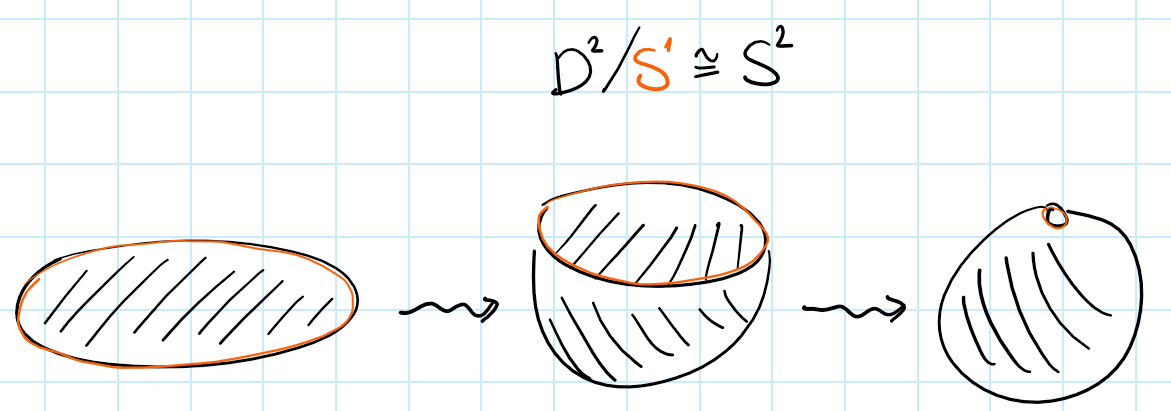 D²/S¹ ≅ S²